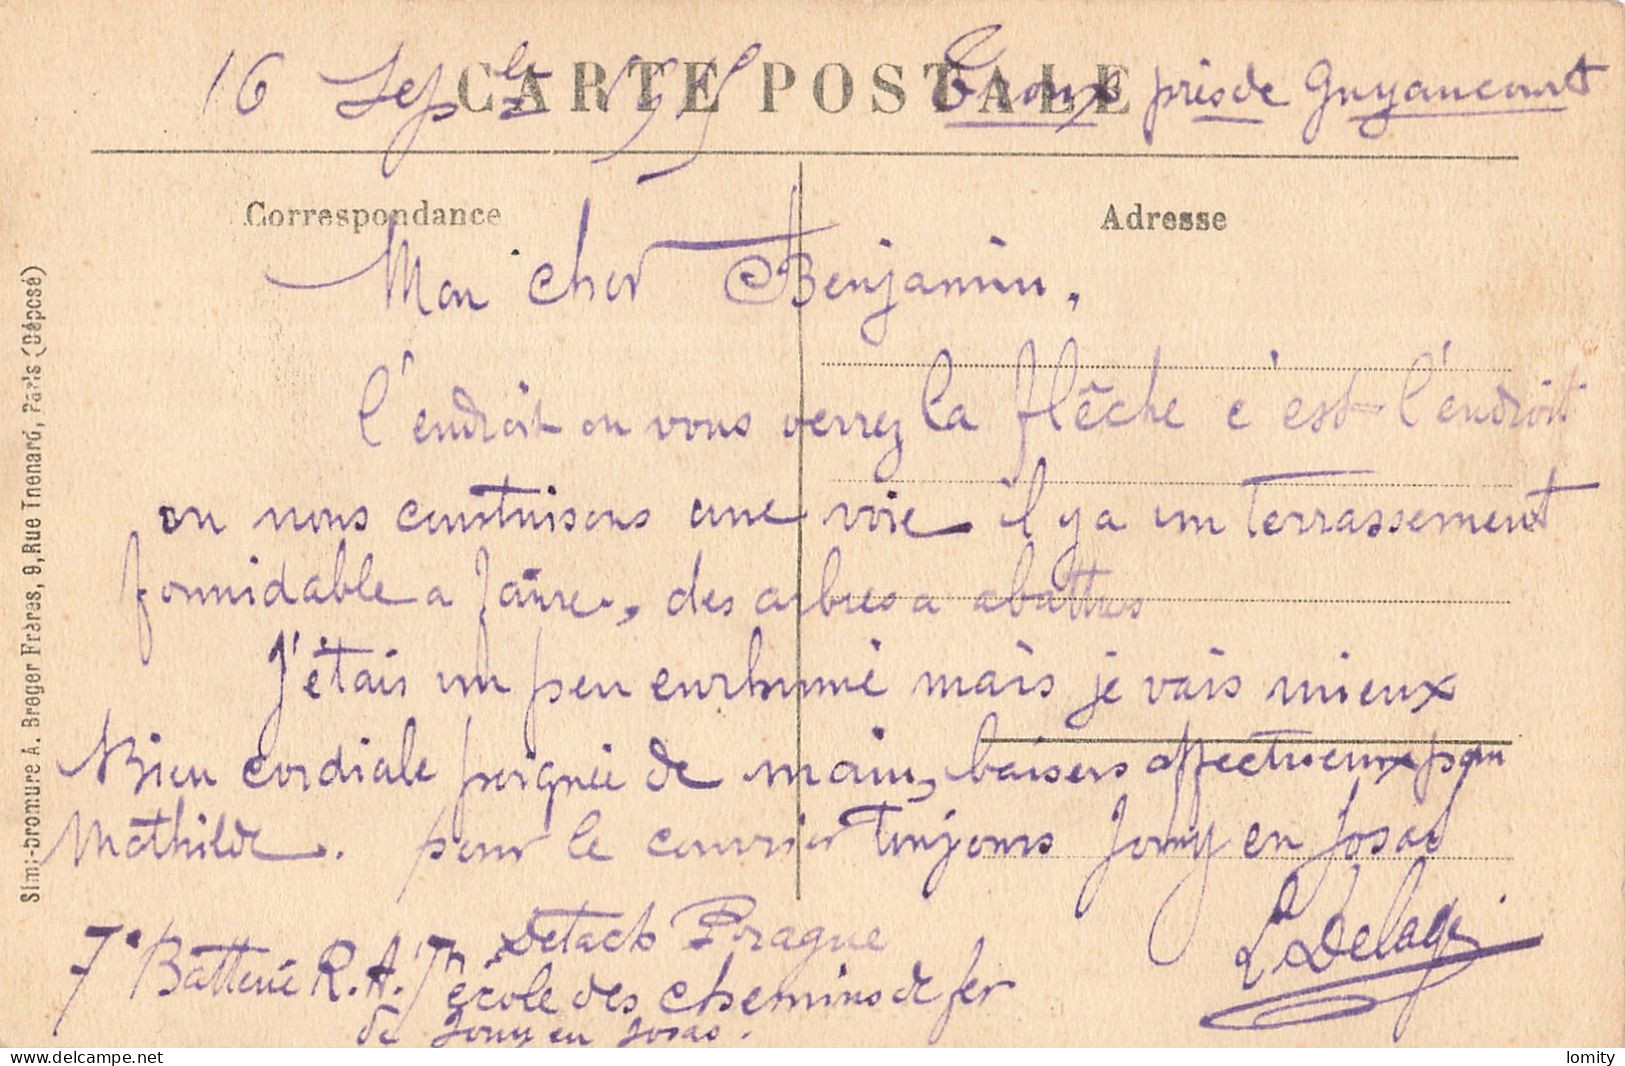 CARTE POSTALE
16 Sept Troux près de Guyancourt
Correspondance
Adresse
Mon cher Benjamin,
l'endroit ou vous verrez la flêche c'est l'endroit
ou nous construisons une voie il y a un Terrassement
formidable a faire, des arbres a abattres
J'étais un peu enrhumé mais je vais mieux
Bien cordiale poignée de main, baisers affectueux pour
Mathilde. pour le courrier Toujours Jouy en Josas
7e Batterie R.A. Detacht
école des chemins de fer
de Jouy en Josas.
L Delage
Simili-bromure A. Breger Frères, 9, Rue Thenard, Paris (Déposé)
lomity